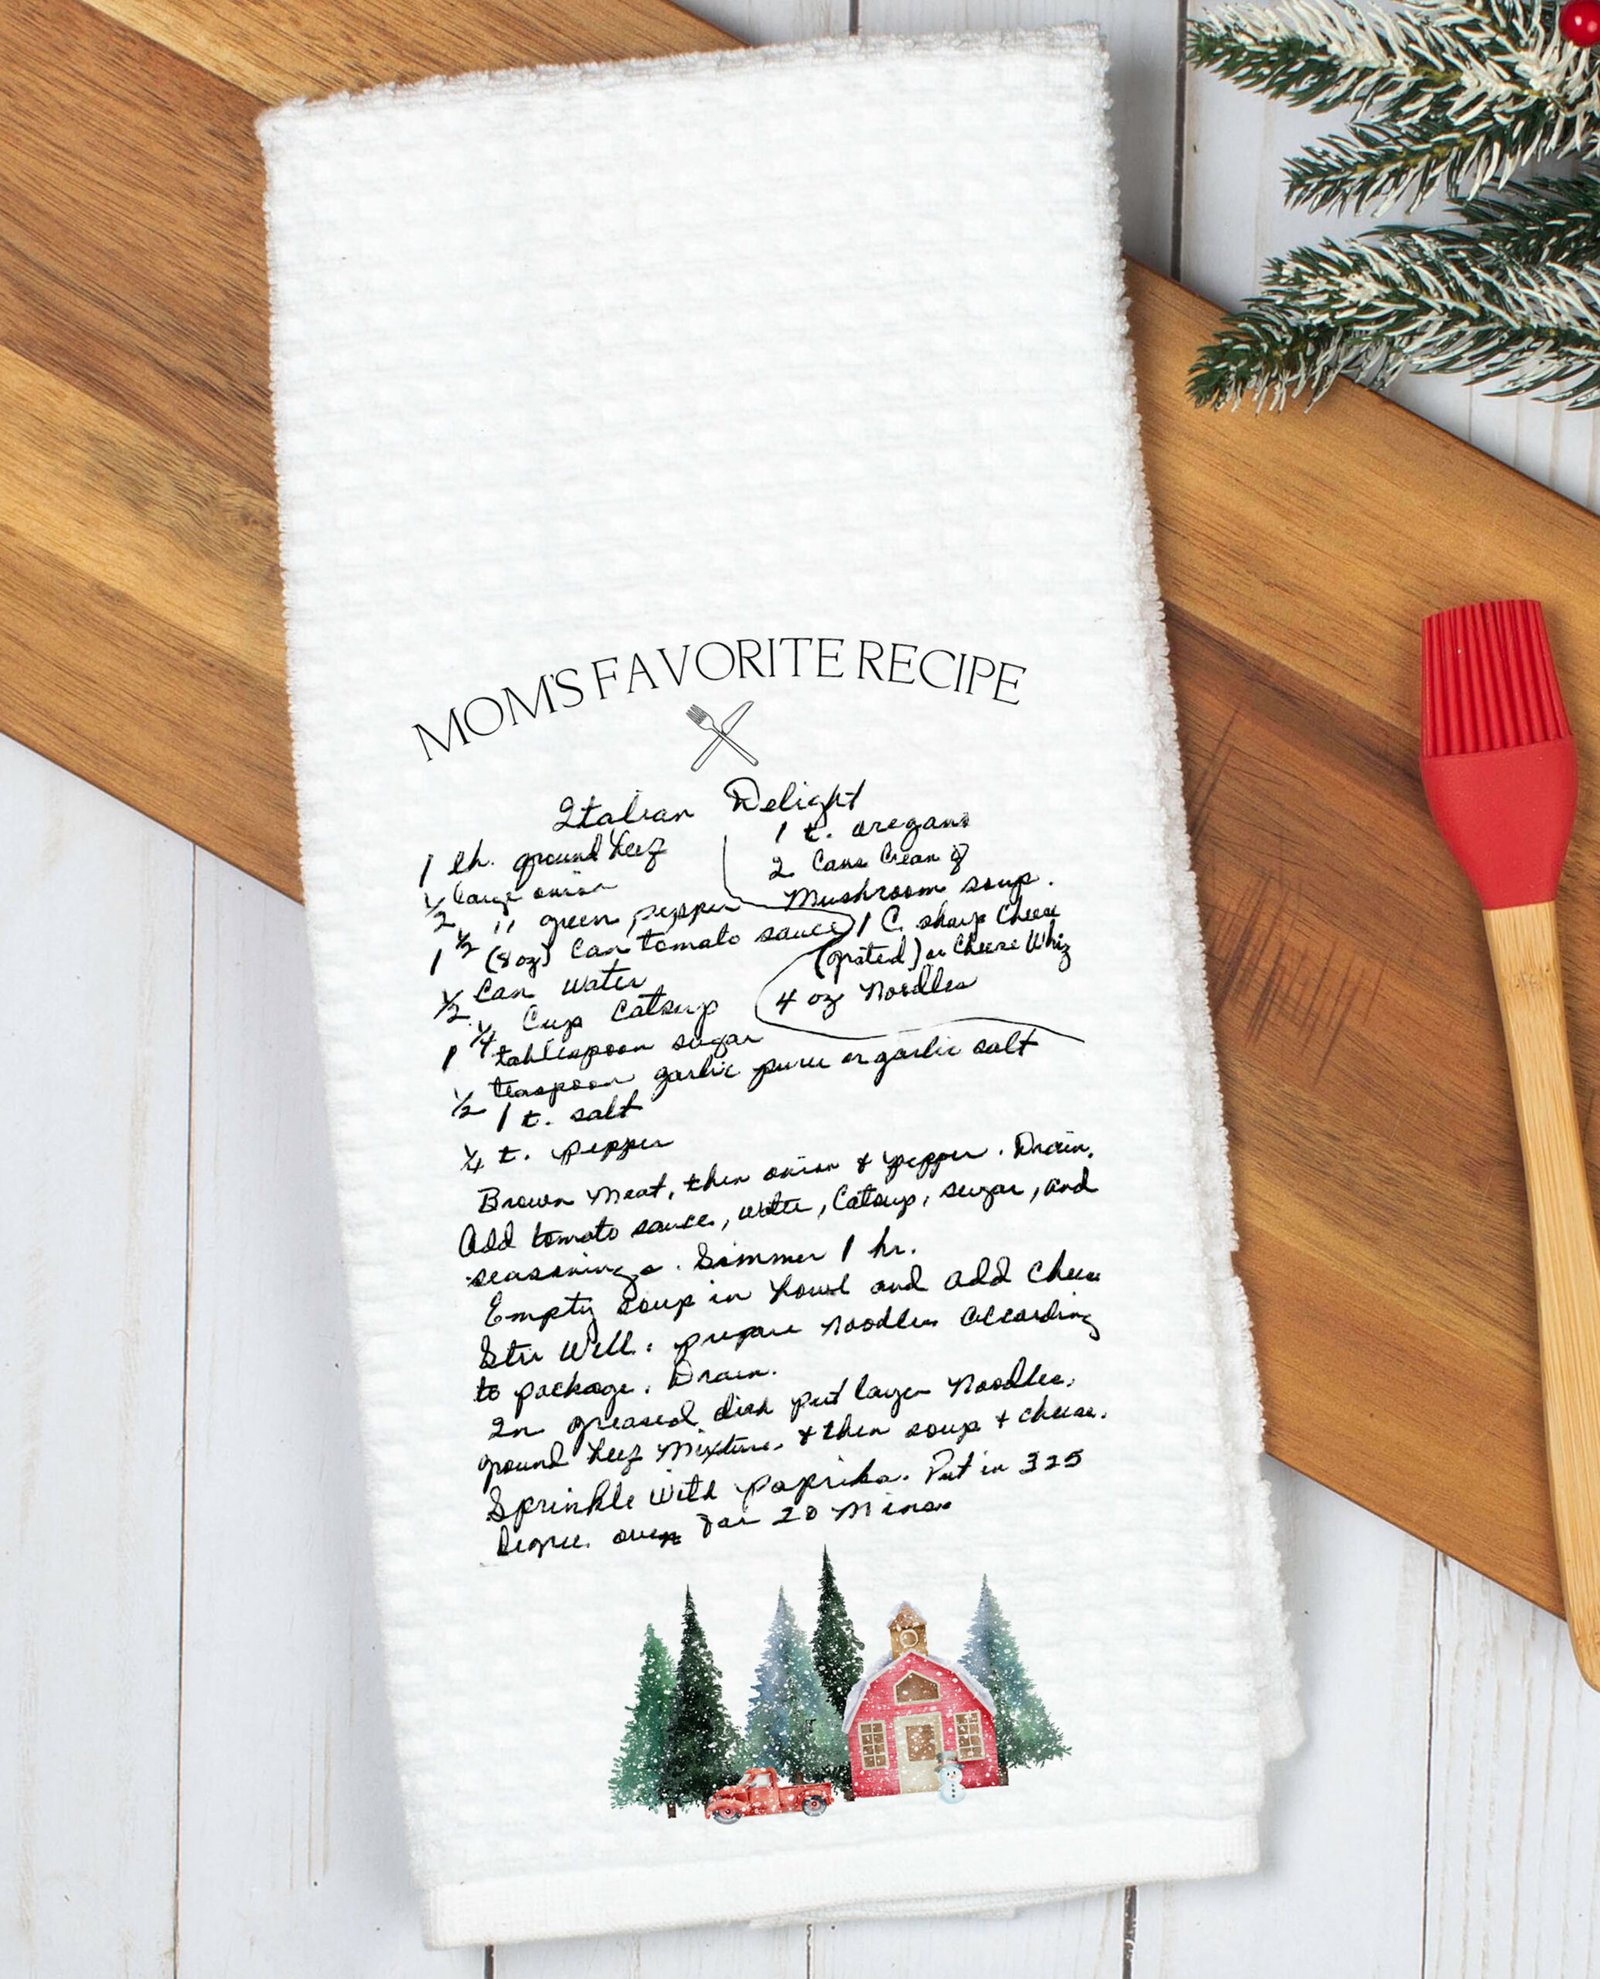 MOM'S FAVORITE RECIPE
Italian Delight
1 lb. ground beef
1/2 large onion
1/2 " green pepper
1 1/2 (8 oz) Can tomato sauce
1/2 Can water
1/4 Cup Catsup
1 tablespoon sugar
1/2 teaspoon garlic puree or garlic salt
1 t. salt
1/4 t. pepper
1 t. oregano
2 Cans Cream of
Mushroom soup.
1 C. sharp Cheese
(grated) or Cheese Whiz
4 oz Noodles
Brown Meat, then onion & pepper. Drain.
Add tomato sauce, water, Catsup, sugar, and
seasonings. Simmer 1 hr.
Empty soup in bowl and add Cheese
Stir Well. prepare Noodles According
to package. Drain.
In greased dish put layer Noodles,
ground beef Mixture, & then soup & cheese.
Sprinkle With Paprika. Put in 325
Degree oven for 20 Mins.